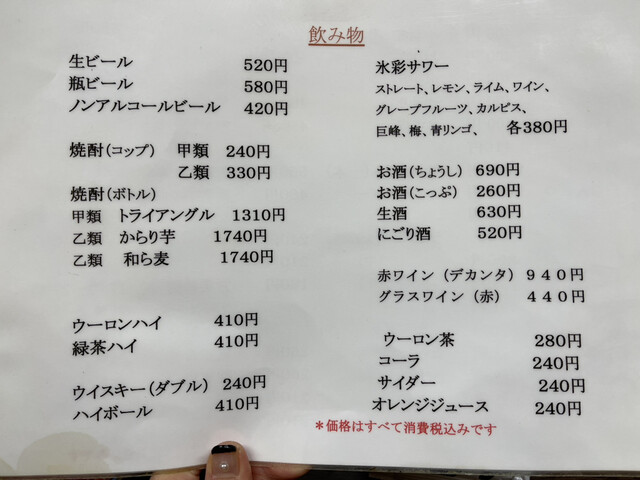 飲み物
生ビール 520円
瓶ビール 580円
ノンアルコールビール 420円
焼酎(コップ) 甲類 240円
乙類 330円
焼酎(ボトル)
甲類 トライアングル 1310円
乙類 からり芋 1740円
乙類 和ら麦 1740円
ウーロンハイ 410円
緑茶ハイ 410円
ウイスキー(ダブル) 240円
ハイボール 410円
氷彩サワー
ストレート、レモン、ライム、ワイン、
グレープフルーツ、カルピス、
巨峰、梅、青リンゴ、 各380円
お酒(ちょうし) 690円
お酒(こっぷ) 260円
生酒 630円
にごり酒 520円
赤ワイン(デカンタ) 940円
グラスワイン(赤) 440円
ウーロン茶 280円
コーラ 240円
サイダー 240円
オレンジジュース 240円
*価格はすべて消費税込みです